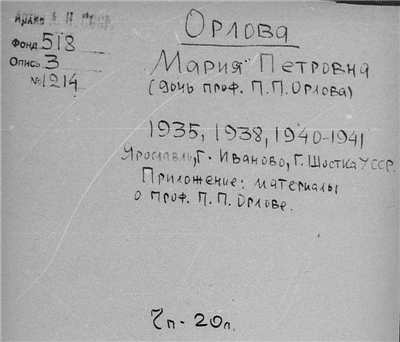 Архив А. Н. СССР
Фонд 518
Опись 3
№ 1214
Орлова
Мария Петровна
(дочь проф. П.П. Орлова)
1935, 1938, 1940-1941
Ярославль, г. Иваново, г. Шостка УССР.
Приложение: материалы
о проф. П. П. Орлове.
20л.